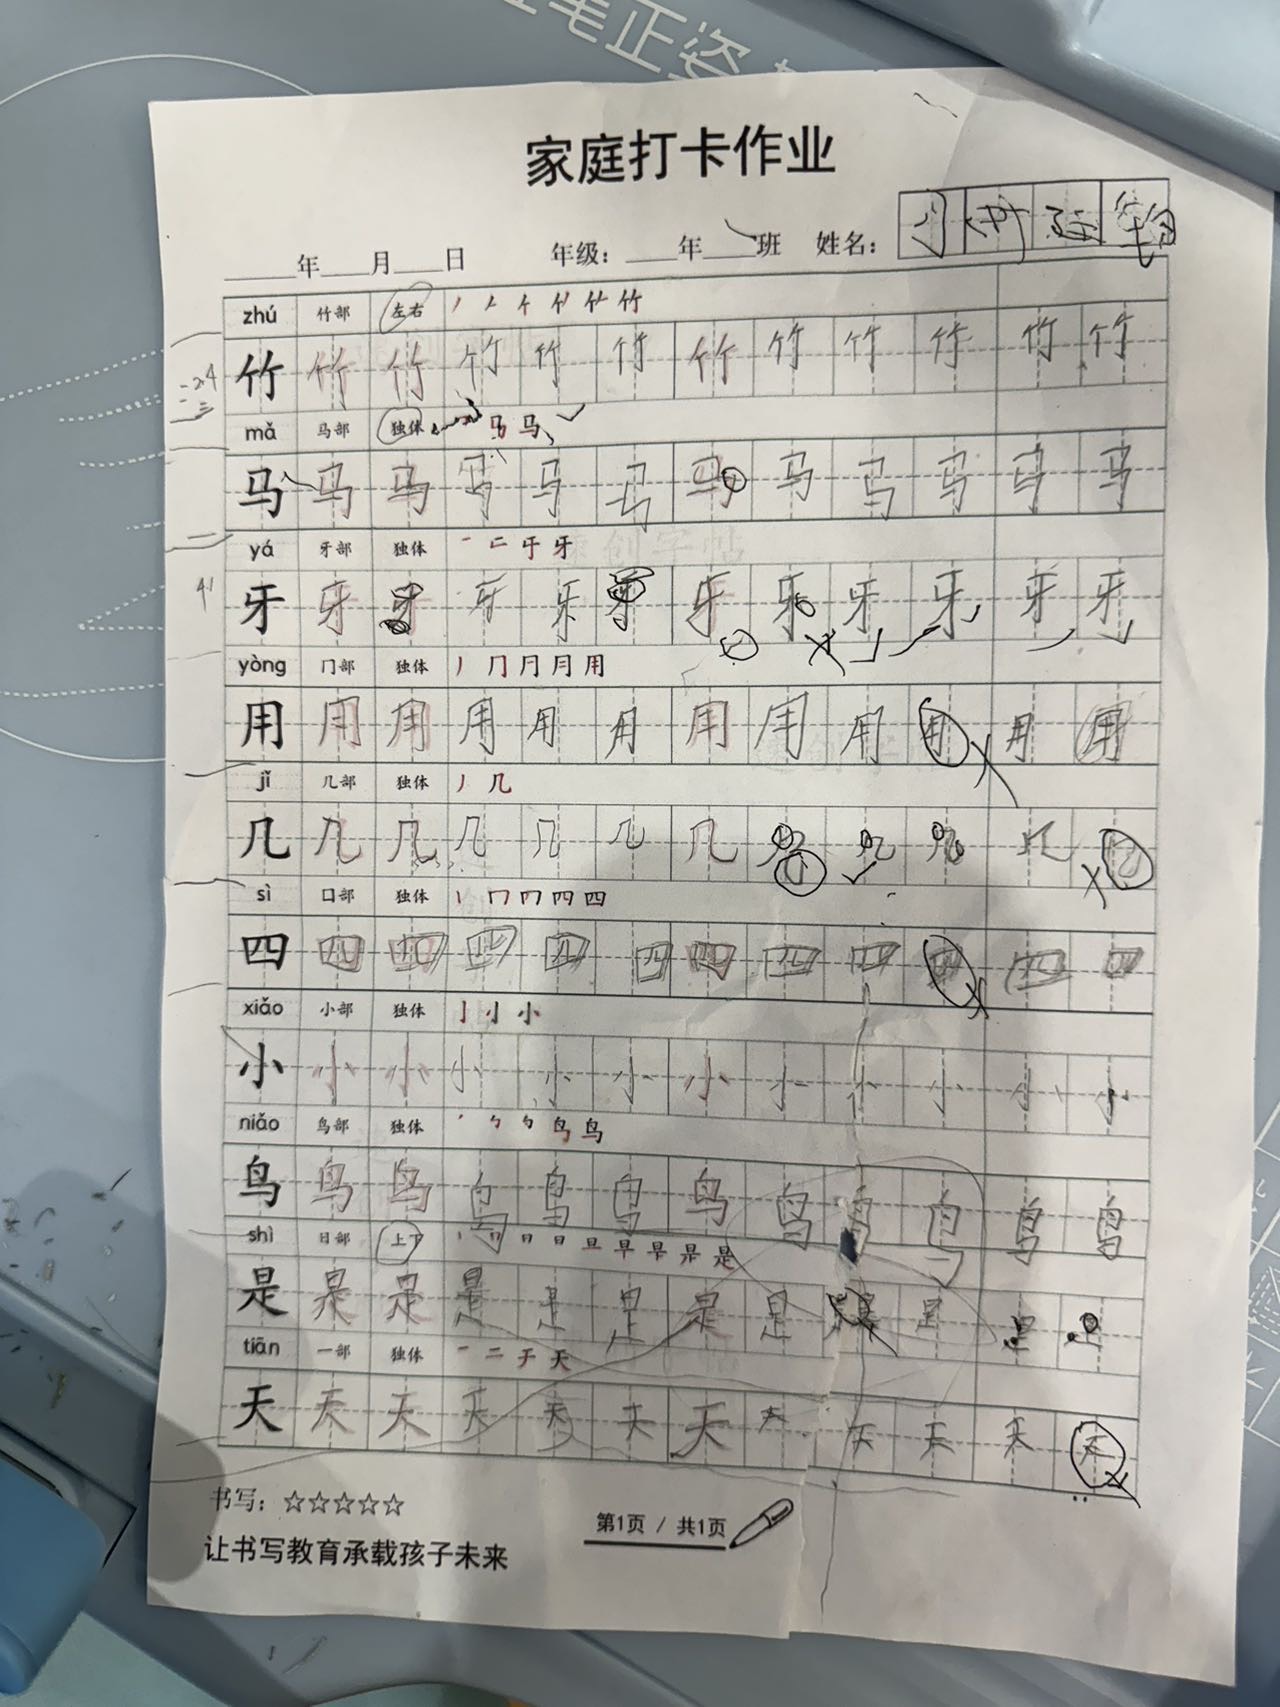 笔正姿
家庭打卡作业
年 月 日 年级: 年 班 姓名:
zhú 竹部 左右 竹
竹 竹 竹 竹 竹 竹 竹 竹 竹 竹 竹 竹
mǎ 马部 独体 马
马 马 马 马 马 马 马 马 马 马 马 马
yá 牙部 独体 一 二 于 牙
牙 牙 牙 牙 牙 牙 牙 牙 牙 牙 牙 牙
yòng 门部 独体 丿 冂 月 月 用
用 用 用 用 用 用 用 用 用 用 用 用
jǐ 几部 独体 丿 几
几 几 几 几 几 几 几 几 几 几 几 几
sì 口部 独体 丨 冂 四 四
四 四 四 四 四 四 四 四 四 四 四 四
xiǎo 小部 独体 亅 小
小 小 小 小 小 小 小 小 小 小 小 小
niǎo 鸟部 独体 鸟 鸟
鸟 鸟 鸟 鸟 鸟 鸟 鸟 鸟 鸟 鸟 鸟 鸟
shì 日部 上下 丨 日 日 旦 早 是
是 是 是 是 是 是 是 是 是 是
tiān 一部 独体 一 二 于 天
天 天 天 天 天 天 天 天 天 天 天 天
书写: ☆☆☆☆☆
第1页 / 共1页
让书写教育承载孩子未来